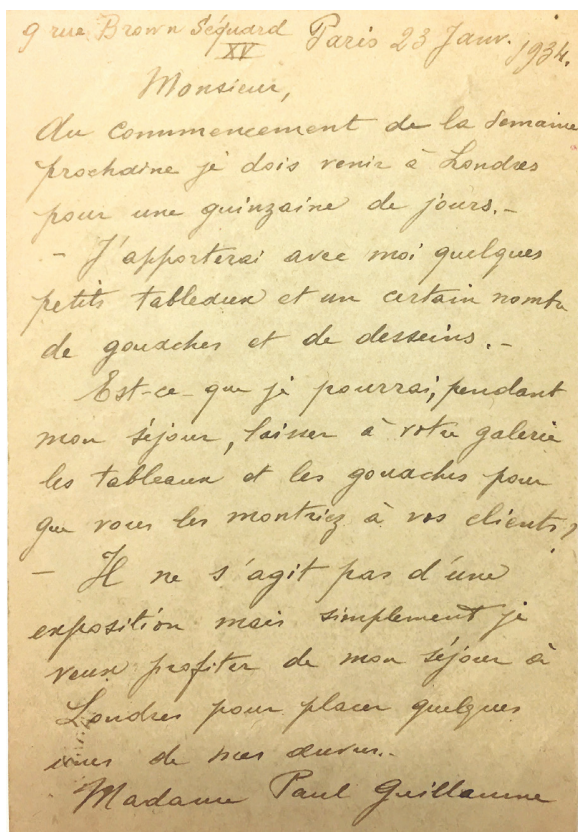 9 rue Brown Séquard Paris 23 Janv. 1934.
XV
Monsieur,
Au commencement de la semaine
prochaine je dois venir à Londres
pour une quinzaine de jours.-
- J'apporterai avec moi quelques
petits tableaux et un certain nombre
de gouaches et de desseins.-
Est-ce-que je pourrai, pendant
mon séjour, laisser à votre galerie
les tableaux et les gouaches pour
que vous les montriez à vos clients?
- Il ne s'agit pas d'une
exposition mais simplement je
veux profiter de mon séjour à
Londres pour placer quelques
unes de mes œuvres.-
Madame Paul Guillaume